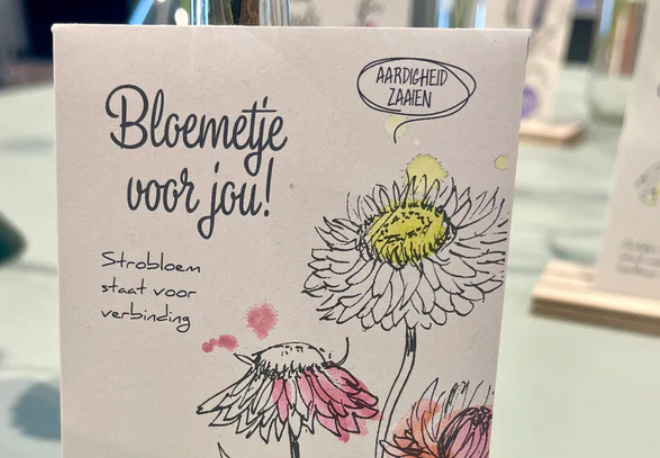 AARDIGHEID
ZAAIEN
Bloemetje
voor jou!
Strobloem
staat voor
verbinding